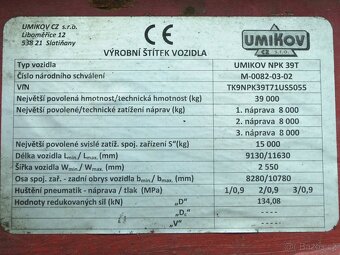 UMIKOV CZ s.r.o.
Liboměřice 12
538 21 Slatiňany
CE
UMIKOV
CZ s.r.o.
VÝROBNÍ ŠTÍTEK VOZIDLA
Typ vozidla UMIKOV NPK 39T
Číslo národního schválení M-0082-03-02
VIN TK9NPK39T71US5055
Největší povolená hmotnost/technická hmotnost (kg) 39 000
Největší povolené/technické zatížení náprav (kg) 1. náprava 8 000
2. náprava 8 000
3. náprava 8 000
Největší povolené svislé zatíž. spoj. zařízení S"(kg) 15 000
Délka vozidla Lmin/ Lmax. (mm) 9130/11630
Šířka vozidla Wmin/ Wmax. (mm) 2 550
Osa spoj. zař. - zadní obrys vozidla bmin/ bmax (mm) 8280/10780
Huštění pneumatik - náprava / tlak (MPa) 1/0,9 2/0,9 3/0,9
Hodnoty redukovaných sil (kN) „D" 134,08
„Dc" -
„V" -